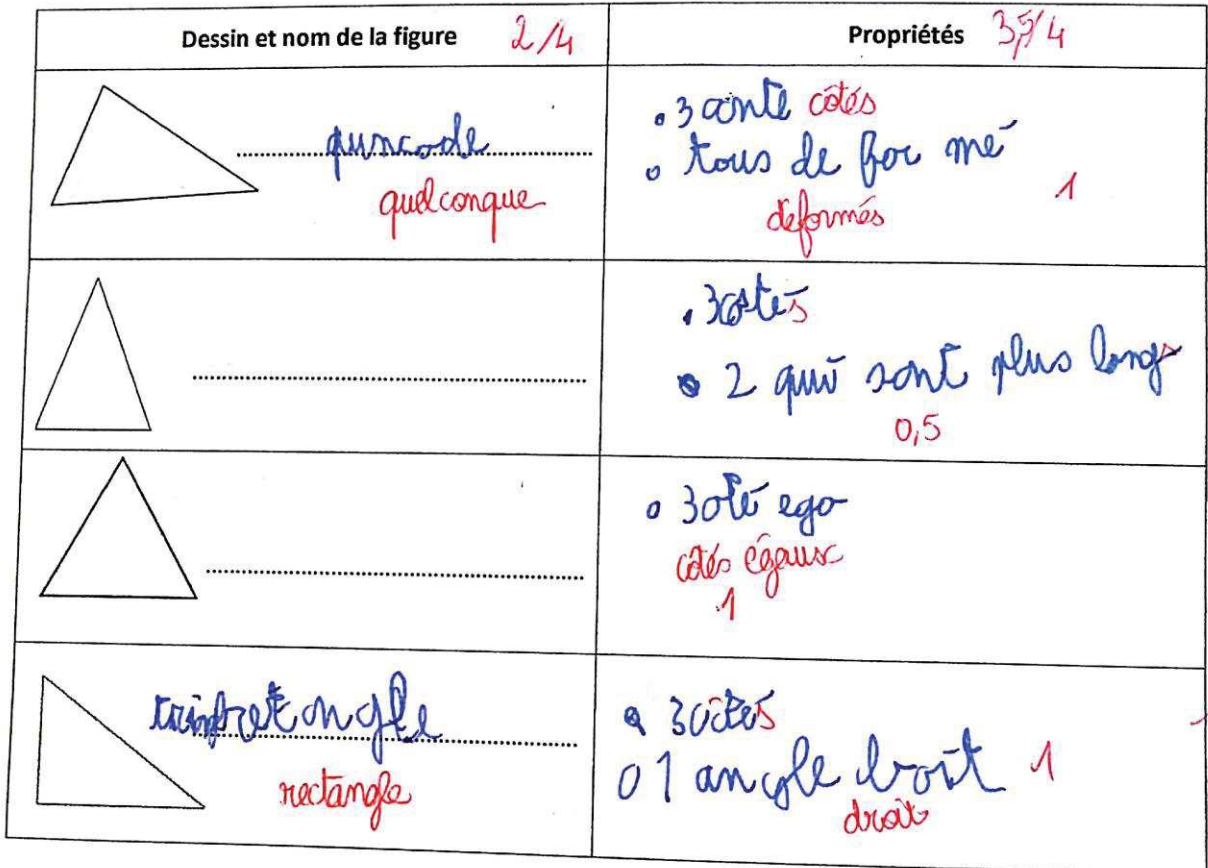 Dessin et nom de la figure 2/4
Propriétés 3,5/4
quncode
quelconque
• 3 conté côtés
• tous de for mé
déformés
1
• 3 cotés
• 2 qui sont plus longs
0,5
• 3 oté ego
côtés égaux
1
rectangle
• 3 cotés
• 1 angle droit 1
droit